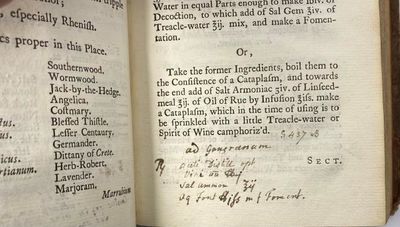 , eſpecially Rheniſh.
cs proper in this Place.
Southernwood.
Wormwood.
Jack-by-the-Hedge.
Angelica.
Coſtmary.
Bleſſed Thiſtle.
Leſſer Centaury.
Germander.
Dittany of Crete.
Herb-Robert.
Lavender.
Marjoram.
Marrubium
Water in equal Parts enough to make
Decoction, to which add of Sal Gem ʒiv. of
Treacle-water ℥ij. mix, and make a Fomen-
tation.
Or,
Take the former Ingredients, boil them to
the Conſiſtence of a Cataplaſm, and towards
the end add of Salt Armoniac ʒiv. of Linſeed-
meal ℥ij. of Oil of Rue by Infuſion ℥iſs. make
a Cataplaſm, which in the time of uſing is to
be ſprinkled with a little Treacle-water or
Spirit of Wine camphoriz'd.
SECT.
ad Gangraenam
Sal ammon ℥ij
Aq Font m f Foment.